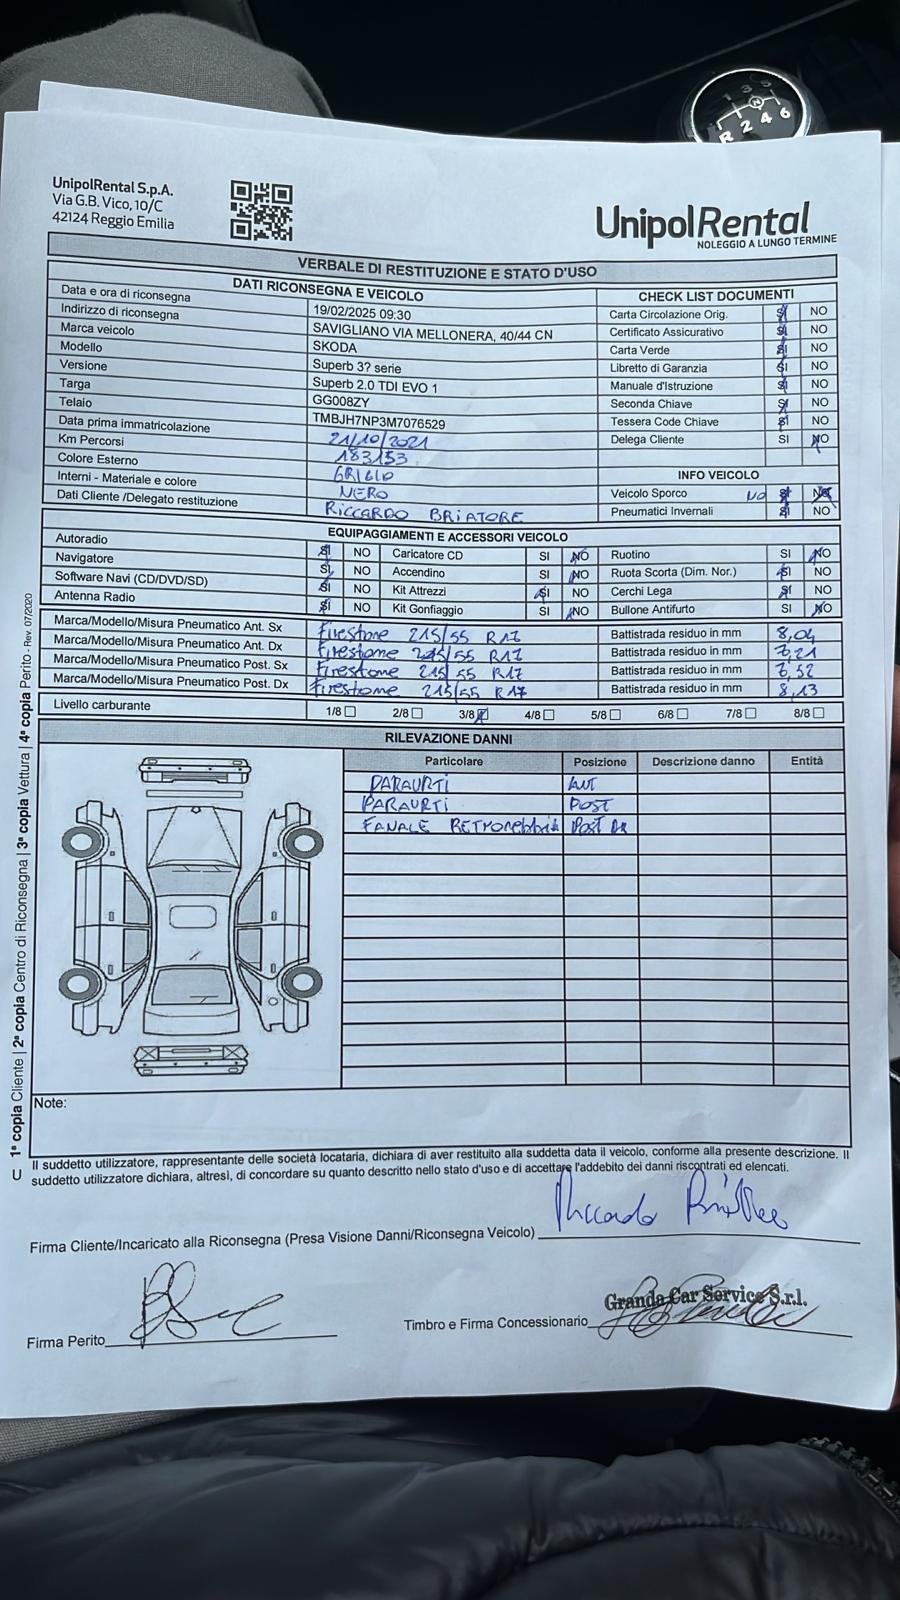 UnipolRental S.p.A.
Via G.B. Vico, 10/C
42124 Reggio Emilia
UnipolRental
NOLEGGIO A LUNGO TERMINE
VERBALE DI RESTITUZIONE E STATO D'USO
DATI RICONSEGNA E VEICOLO
Data e ora di riconsegna 19/02/2025 09:30
Indirizzo di riconsegna SAVIGLIANO VIA MELLONERA, 40/44 CN
Marca veicolo SKODA
Modello Superb 3? serie
Versione Superb 2.0 TDI EVO 1
Targa GG008ZY
Telaio TMBJH7NP3M7076529
Data prima immatricolazione 21/10/2021
Km Percorsi 183153
Colore Esterno GRIGIO
Interni - Materiale e colore NERO
Dati Cliente /Delegato restituzione RICCARDO BRIATORE
CHECK LIST DOCUMENTI
Carta Circolazione Orig. SI NO
Certificato Assicurativo SI NO
Carta Verde SI NO
Libretto di Garanzia SI NO
Manuale d'Istruzione SI NO
Seconda Chiave SI NO
Tessera Code Chiave SI NO
Delega Cliente SI NO
INFO VEICOLO
Veicolo Sporco NO SI NO
Pneumatici Invernali SI NO
EQUIPAGGIAMENTI E ACCESSORI VEICOLO
Autoradio SI NO Caricatore CD SI NO Ruotino SI NO
Navigatore SI NO Accendino SI NO Ruota Scorta (Dim. Nor.) SI NO
Software Navi (CD/DVD/SD) SI NO Kit Attrezzi SI NO Cerchi Lega SI NO
Antenna Radio SI NO Kit Gonfiaggio SI NO Bullone Antifurto SI NO
Marca/Modello/Misura Pneumatico Ant. Sx Firestone 215/55 R17 Battistrada residuo in mm 8,04
Marca/Modello/Misura Pneumatico Ant. Dx Firestone 215/55 R17 Battistrada residuo in mm 7,21
Marca/Modello/Misura Pneumatico Post. Sx Firestone 215/55 R17 Battistrada residuo in mm 7,52
Marca/Modello/Misura Pneumatico Post. Dx Firestone 215/55 R17 Battistrada residuo in mm 8,13
Livello carburante 1/8 2/8 3/8 4/8 5/8 6/8 7/8 8/8
RILEVAZIONE DANNI
Particolare Posizione Descrizione danno Entità
PARAURTI ANT
PARAURTI POST
FANALE Post Dx
Note:
Il suddetto utilizzatore, rappresentante delle società locataria, dichiara di aver restituito alla suddetta data il veicolo, conforme alla presente descrizione. Il
suddetto utilizzatore dichiara, altresì, di concordare su quanto descritto nello stato d'uso e di accettare l'addebito dei danni riscontrati ed elencati.
Firma Cliente/Incaricato alla Riconsegna (Presa Visione Danni/Riconsegna Veicolo)
Firma Perito
Timbro e Firma Concessionario
Granda Car Service S.r.l.
1ª copia Cliente | 2ª copia Centro di Riconsegna | 3ª copia Vettura | 4ª copia Perito - Rev. 07/2020
1 3 5
N
R 2 4 6